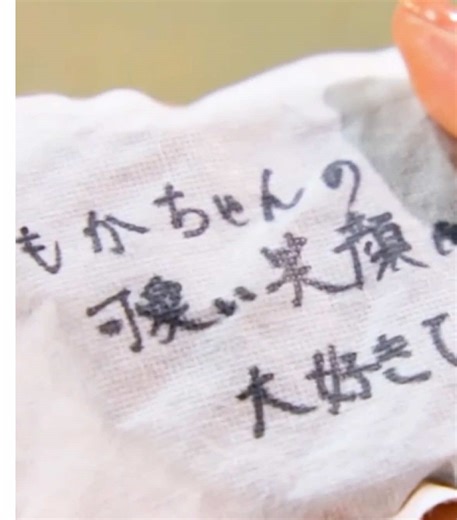 もかちゃんの
可愛い笑顔
大好きで